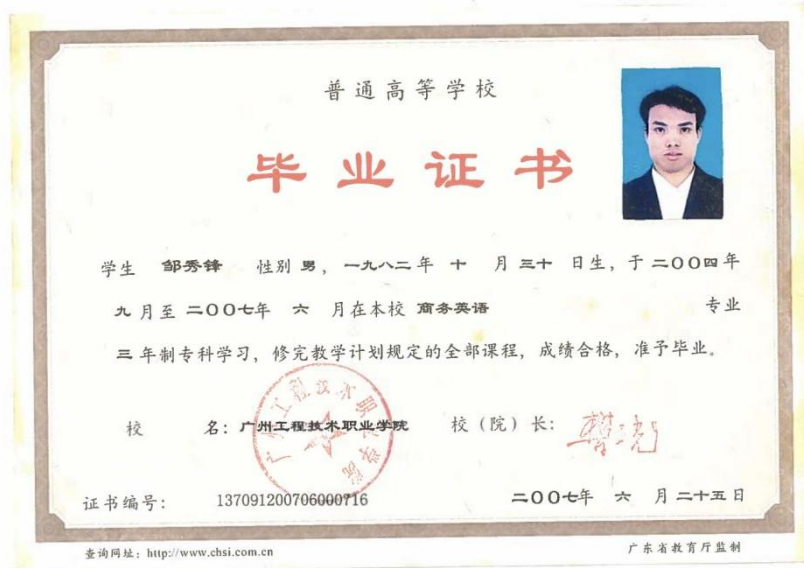 普通高等学校
毕业证书
学生 邹秀锋 性别 男，一九八二年 十 月 三十 日生，于 二〇〇四年
九 月至 二〇〇七年 六 月在本校 商务英语 专业
三 年制专科学习，修完教学计划规定的全部课程，成绩合格，准予毕业。
校 名：广州工程技术职业学院 校（院）长：
广州工程技术职业学院
证书编号： 137091200706000716 二〇〇七年 六 月 二十五 日
查询网址：http://www.chsi.com.cn 广东省教育厅监制